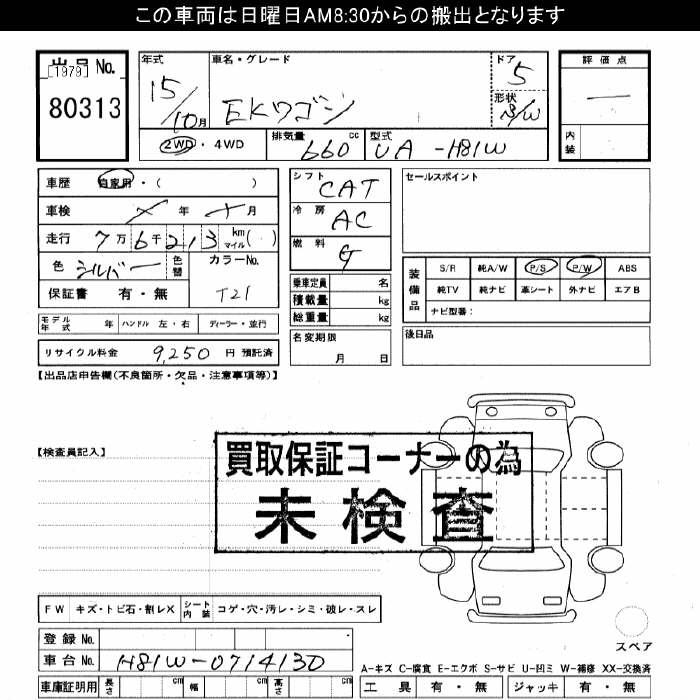 この車両は日曜日AM8:30からの搬出となります
出品 No.
[1979]
80313
年式 15/10月
車名・グレード EKワゴン
ドア 5
形状 S/W
評価点 —
内装
2WD・4WD
排気量 660 cc
型式 UA-H81W
車歴 自家用・( )
車検 メ 年 メ 月
走行 7万6千213 km マイル ( )
色 シルバー 色替 カラーNo. T21
保証書 有・無
モデル年式 年 ハンドル 左・右 ディーラー・並行
リサイクル料金 9,250 円 預託済
シフト CAT
冷房 AC
燃料 G
乗車定員 名
積載量 kg
総重量 kg
名変期限 月 日
セールスポイント
装備品 S/R 純A/W P/S P/W ABS
純TV 純ナビ 革シート 外ナビ エアB
ナビ型番:
後日品
【出品店申告欄(不良箇所・欠品・注意事項等)】
【検査員記入】
買取保証コーナーの為
未検査
FW キズ・トビ石・割レX シート内装 コゲ・穴・汚レ・シミ・破レ・スレ
スペア
登録 No.
車台 No. H81W-0714130
A-キズ C-腐食 E-エクボ S-サビ U-凹ミ W-補修 XX-交換済
車庫証明用 長さ cm 幅 cm 高さ cm
工具 有・無 ジャッキ 有・無